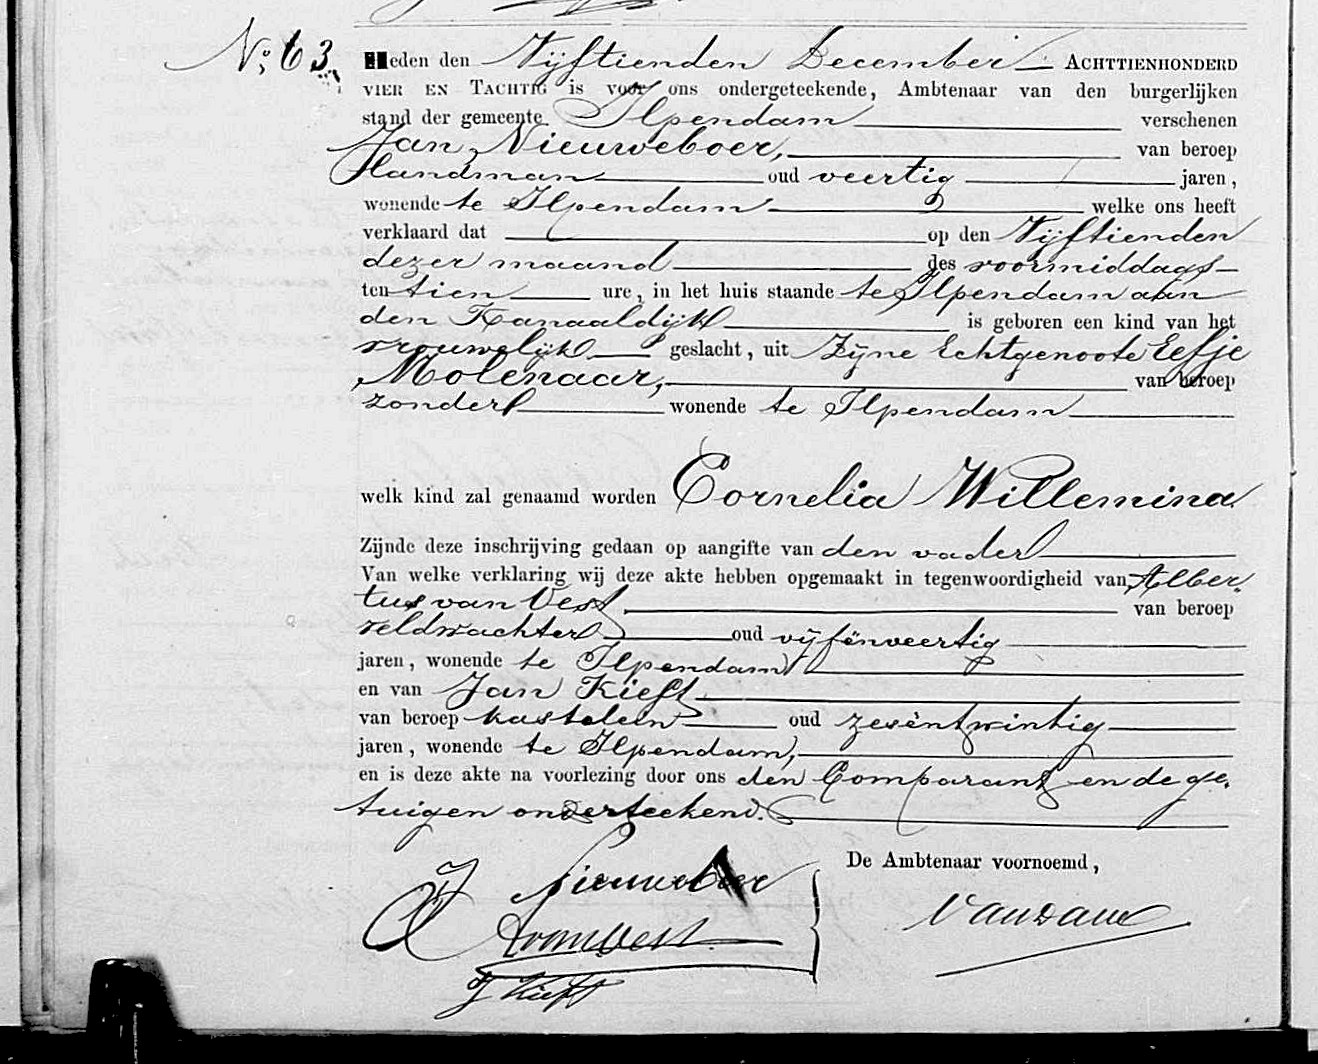 No. 63
Heden den Vijftienden December ACHTTIENHONDERD
VIER EN TACHTIG is voor ons ondergeteekende, Ambtenaar van den burgerlijken
stand der gemeente Ilpendam verschenen
Jan Nieuweboer, van beroep
Landman oud veertig jaren,
wonende te Ilpendam welke ons heeft
verklaard dat op den Vijftienden
dezer maand des voormiddags
ten tien ure, in het huis staande te Ilpendam aan
den Kanaaldijk is geboren een kind van het
vrouwelijk geslacht, uit Zijne Echtgenoote Eefje
Molenaar, van beroep
zonder wonende te Ilpendam
welk kind zal genaamd worden Cornelia Willemina
Zijnde deze inschrijving gedaan op aangifte van den vader
Van welke verklaring wij deze akte hebben opgemaakt in tegenwoordigheid van Alber-
tus van Vest, van beroep
veldwachter oud vijfënveertig
jaren, wonende te Ilpendam
en van Jan Kieft
van beroep kastelein oud zesëntwintig
jaren, wonende te Ilpendam,
en is deze akte na voorlezing door ons den Comparant en de ge-
tuigen onderteekend.
De Ambtenaar voornoemd,
J Nieuweboer
A van Vest
Van Dam
J Kieft